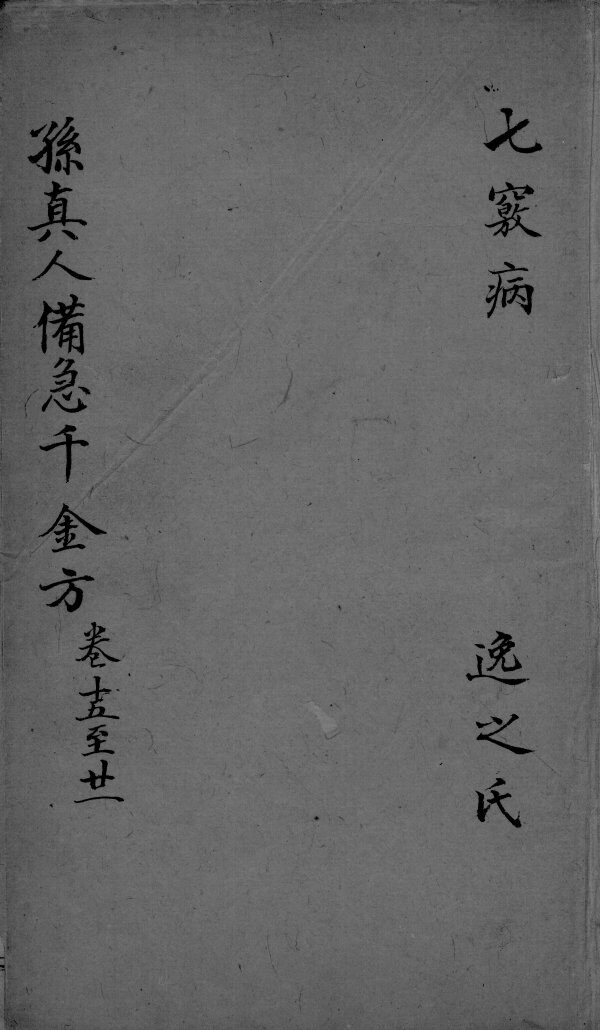 七竅病
逸之氏
孫真人備急千金方
卷十五至廿一